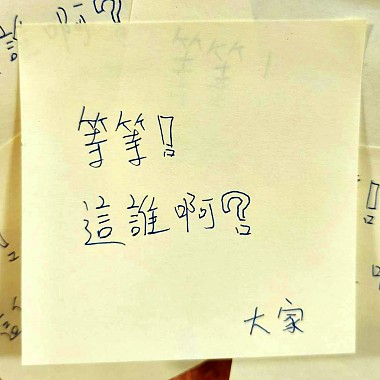 等等！
這誰啊？
大家